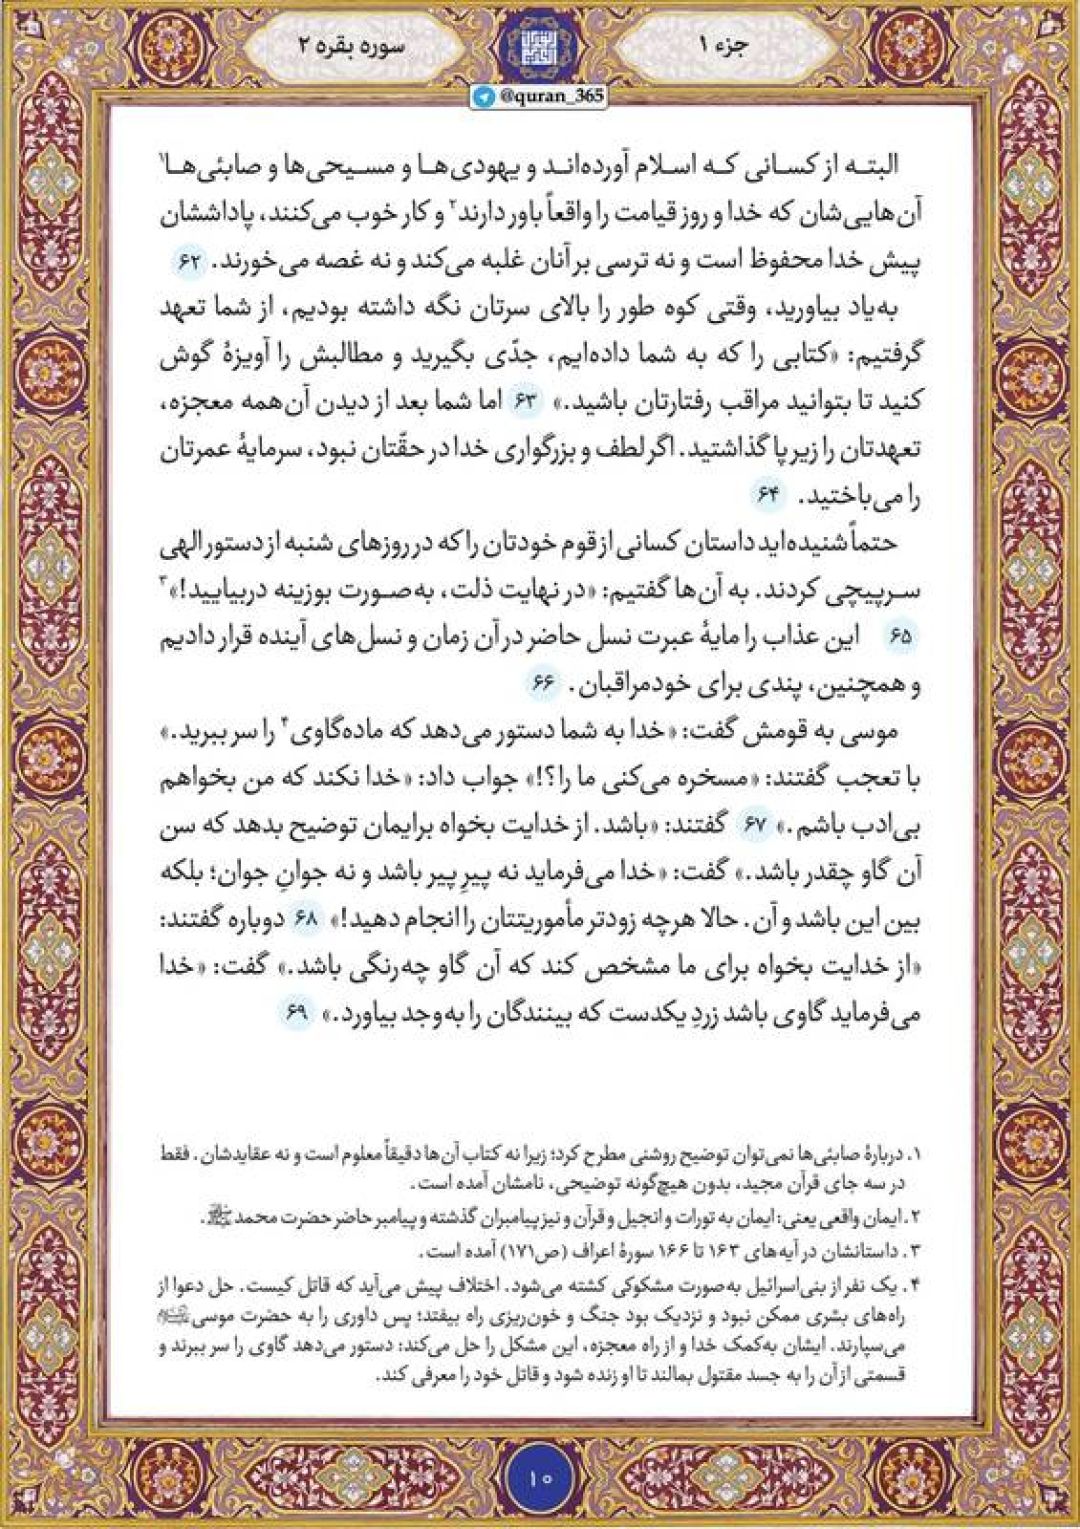 جزء ۱
سوره بقره ۲
@quran_365
البته از کسانی که اسلام آورده‌اند و یهودی‌ها و مسیحی‌ها و صابئی‌ها۱
آن‌هایی‌شان که خدا و روز قیامت را واقعاً باور دارند۲ و کار خوب می‌کنند، پاداششان
پیش خدا محفوظ است و نه ترسی بر آنان غلبه می‌کند و نه غصه می‌خورند. ۶۲
به‌یاد بیاورید، وقتی کوه طور را بالای سرتان نگه داشته بودیم، از شما تعهد
گرفتیم: «کتابی را که به شما داده‌ایم، جدّی بگیرید و مطالبش را آویزهٔ گوش
کنید تا بتوانید مراقب رفتارتان باشید.» ۶۳ اما شما بعد از دیدن آن‌همه معجزه،
تعهدتان را زیر پا گذاشتید. اگر لطف و بزرگواری خدا در حقّتان نبود، سرمایهٔ عمرتان
را می‌باختید. ۶۴
حتماً شنیده‌اید داستان کسانی از قوم خودتان را که در روزهای شنبه از دستور الهی
سرپیچی کردند. به آن‌ها گفتیم: «در نهایت ذلت، به‌صورت بوزینه دربیایید!»۳
۶۵ این عذاب را مایهٔ عبرت نسل حاضر در آن زمان و نسل‌های آینده قرار دادیم
و همچنین، پندی برای خودمراقبان. ۶۶
موسی به قومش گفت: «خدا به شما دستور می‌دهد که ماده‌گاوی۴ را سر ببرید.»
با تعجب گفتند: «مسخره می‌کنی ما را؟!» جواب داد: «خدا نکند که من بخواهم
بی‌ادب باشم.» ۶۷ گفتند: «باشد. از خدایت بخواه برایمان توضیح بدهد که سن
آن گاو چقدر باشد.» گفت: «خدا می‌فرماید نه پیرِ پیر باشد و نه جوانِ جوان؛ بلکه
بین این باشد و آن. حالا هرچه زودتر مأموریتتان را انجام دهید!» ۶۸ دوباره گفتند:
«از خدایت بخواه برای ما مشخص کند که آن گاو چه‌رنگی باشد.» گفت: «خدا
می‌فرماید گاوی باشد زردِ یکدست که بینندگان را به‌وجد بیاورد.» ۶۹
۱. دربارهٔ صابئی‌ها نمی‌توان توضیح روشنی مطرح کرد؛ زیرا نه کتاب آن‌ها دقیقاً معلوم است و نه عقایدشان. فقط
در سه جای قرآن مجید، بدون هیچ‌گونه توضیحی، نامشان آمده است.
۲. ایمان واقعی یعنی: ایمان به تورات و انجیل و قرآن و نیز پیامبران گذشته و پیامبر حاضر حضرت محمد.
۳. داستانشان در آیه‌های ۱۶۳ تا ۱۶۶ سورهٔ اعراف (ص۱۷۱) آمده است.
۴. یک نفر از بنی‌اسرائیل به‌صورت مشکوکی کشته می‌شود. اختلاف پیش می‌آید که قاتل کیست. حل دعوا از
راه‌های بشری ممکن نبود و نزدیک بود جنگ و خون‌ریزی راه بیفتد؛ پس داوری را به حضرت موسی
می‌سپارند. ایشان به‌کمک خدا و از راه معجزه، این مشکل را حل می‌کند: دستور می‌دهد گاوی را سر ببرند و
قسمتی از آن را به جسد مقتول بمالند تا او زنده شود و قاتل خود را معرفی کند.
۱۰